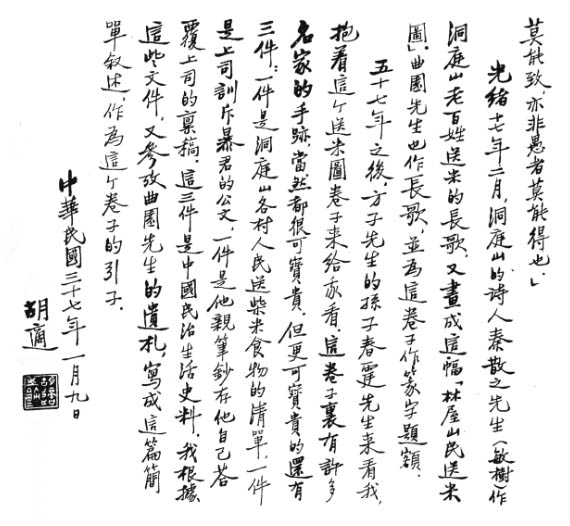 莫能致,亦非愚者莫能得也」
光緒十七年二月,洞庭山的诗人秦散之先生(敏樹)作
洞庭山老百姓送米的長歌,又畫成這幅「林屋山民送米
圖」,曲園先生也作長歌,並為這卷子作篆字題額.
五十七年之後,方子先生的孫子春霆先生来看我,
抱着這个送米圖卷子来給我看.這卷子裏有許多
名家的手跡,當然都很可寶貴.但更可寶貴的還有
三件:一件是洞庭山各村人民送柴米食物的清單,一件
是上司訓斥暴君的公文,一件是他親筆鈔存他自己荅
覆上司的稟稿.這三件是中國民治生活史料.我根據
這些文件,又參攷曲園先生的遺札,寫成這篇簡
單敘述,作為這个卷子的引子.
中華民國三十七年一月九日
胡適